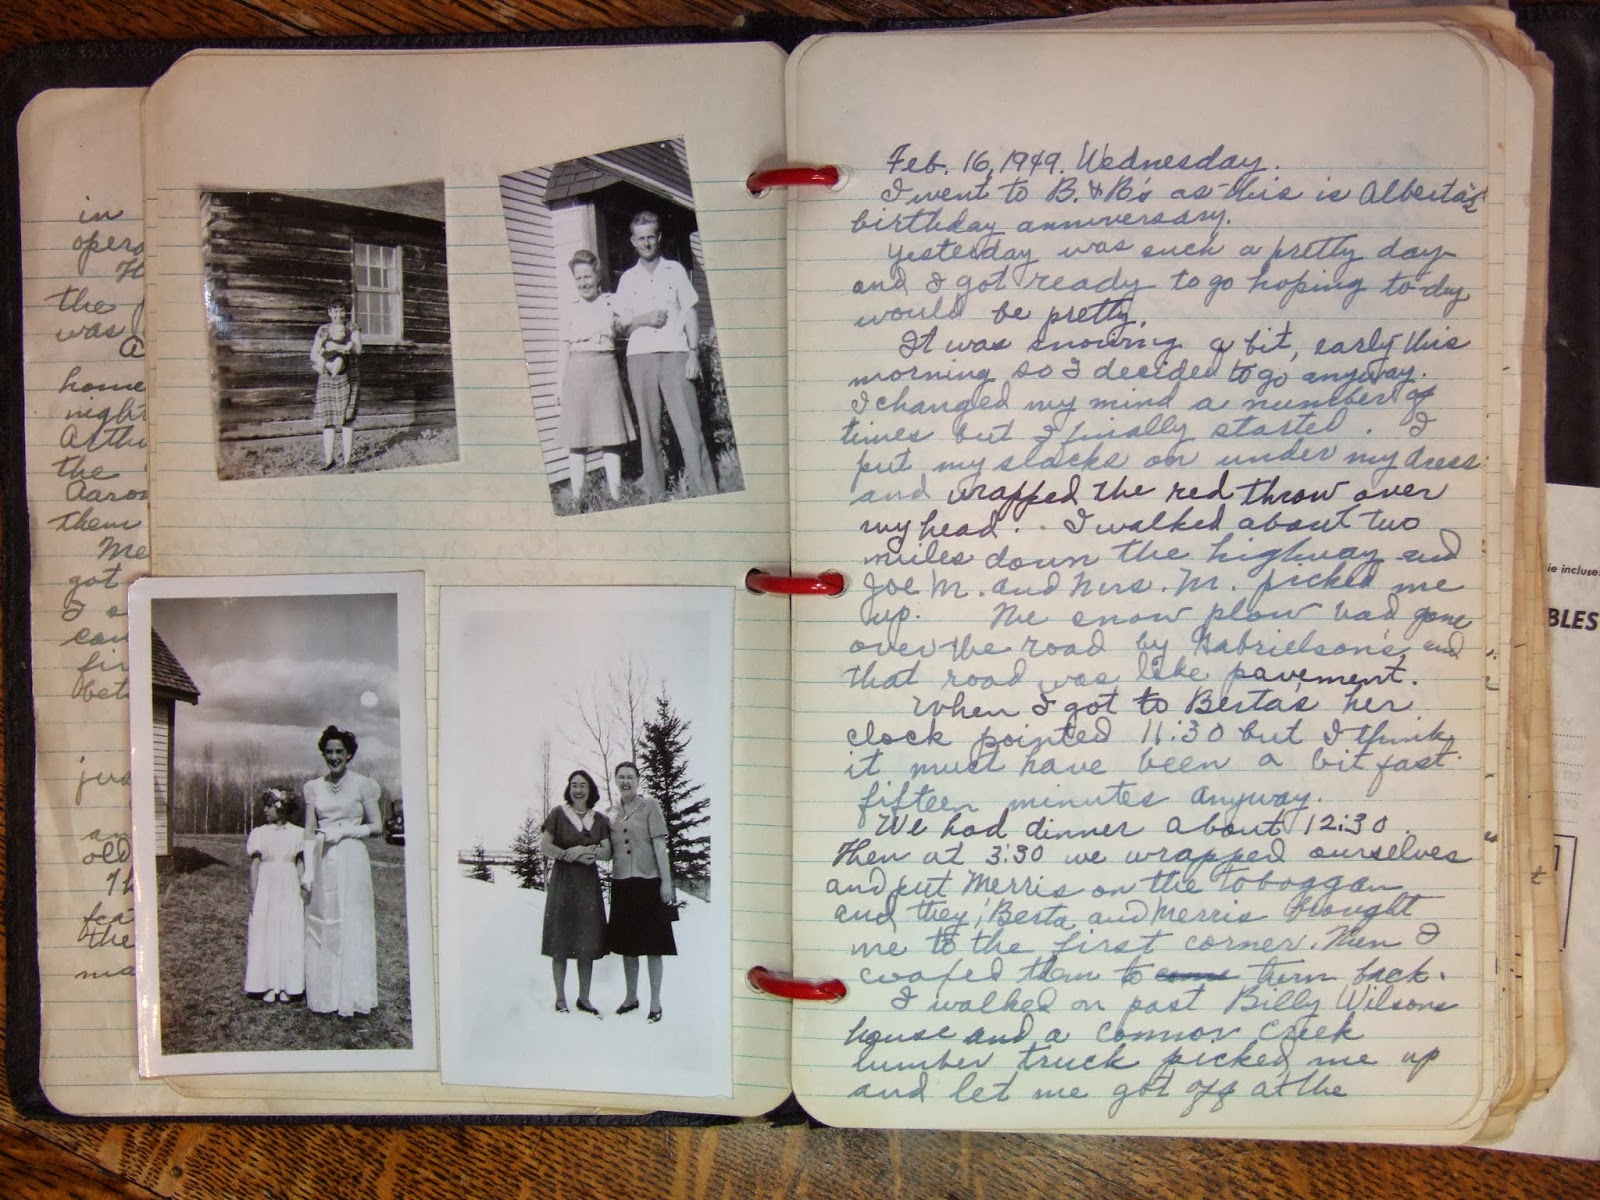 in
opera
H
the
was
A
home
night
Arthu
the
Aaron
them
Me
got
I
can
fir
bet
jus
an
old
Th
fea
the
ma
Feb. 16, 1949. Wednesday.
I went to B. & B's as this is Alberta's
birthday anniversary.
Yesterday was such a pretty day
and I got ready to go hoping to-day
would be pretty.
It was snowing a bit, early this
morning so I decided to go anyway.
I changed my mind a number of
times but I finally started. I
put my slacks on under my dress
and wrapped the red throw over
my head. I walked about two
miles down the highway and
Joe M. and Mrs. M. picked me
up. The snow plow had gone
over the road by Gabrielson's and
that road was like pavement.
When I got to Berta's her
clock pointed 11:30 but I think
it must have been a bit fast
fifteen minutes anyway.
We had dinner about 12:30.
Then at 3:30 we wrapped ourselves
and put Merris on the toboggan
and they, Berta and Merris brought
me to the first corner. Then I
coaxed them to come turn back.
I walked on past Billy Wilsons
house and a Connor Creek
lumber truck picked me up
and let me got off at the
ie incluse
BLES
t